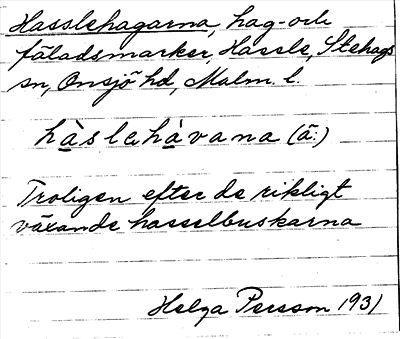 Hasslehagarna, hag- och
fäladsmarker, Hassle, Stehags
sn, Onsjö hd, Malm. l.
hàslehàvana (ā:)
Troligen efter de rikligt
växande hasselbuskarna
Helga Persson 1931